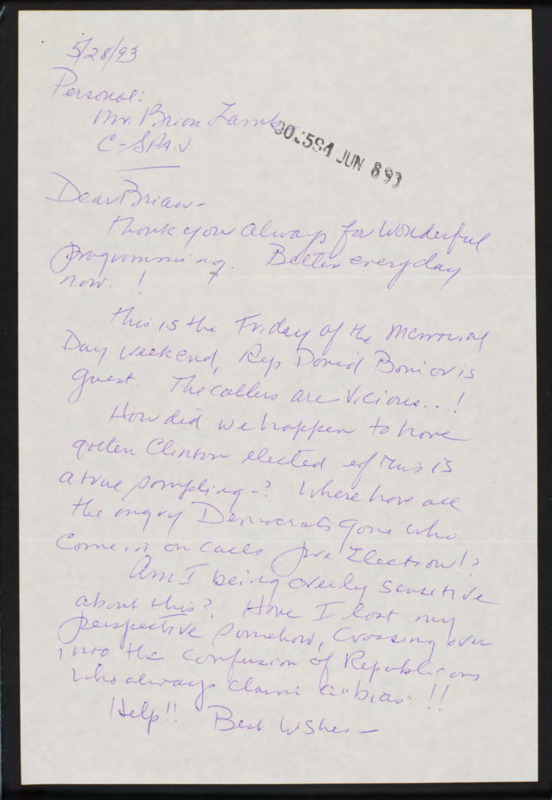 5/28/93
Personal:
Mr. Brian Lamb
C-SPAN
JUN 8 93
Dear Brian -
Thank you always for wonderful
programming. Better everyday
now. !
This is the Friday of the Memorial
Day weekend, Rep David Bonior is
guest. The callers are vicious...!
How did we happen to have
gotten Clinton elected if this is
a true sampling -? Where have all
the angry Democrats gone who
came in on calls pre Election!?
Am I being overly sensitive
about this? Have I lost my
perspective somehow, crossing over
into the confusion of Republicans
who always claim a "bias" !!
Help!! Best Wishes -